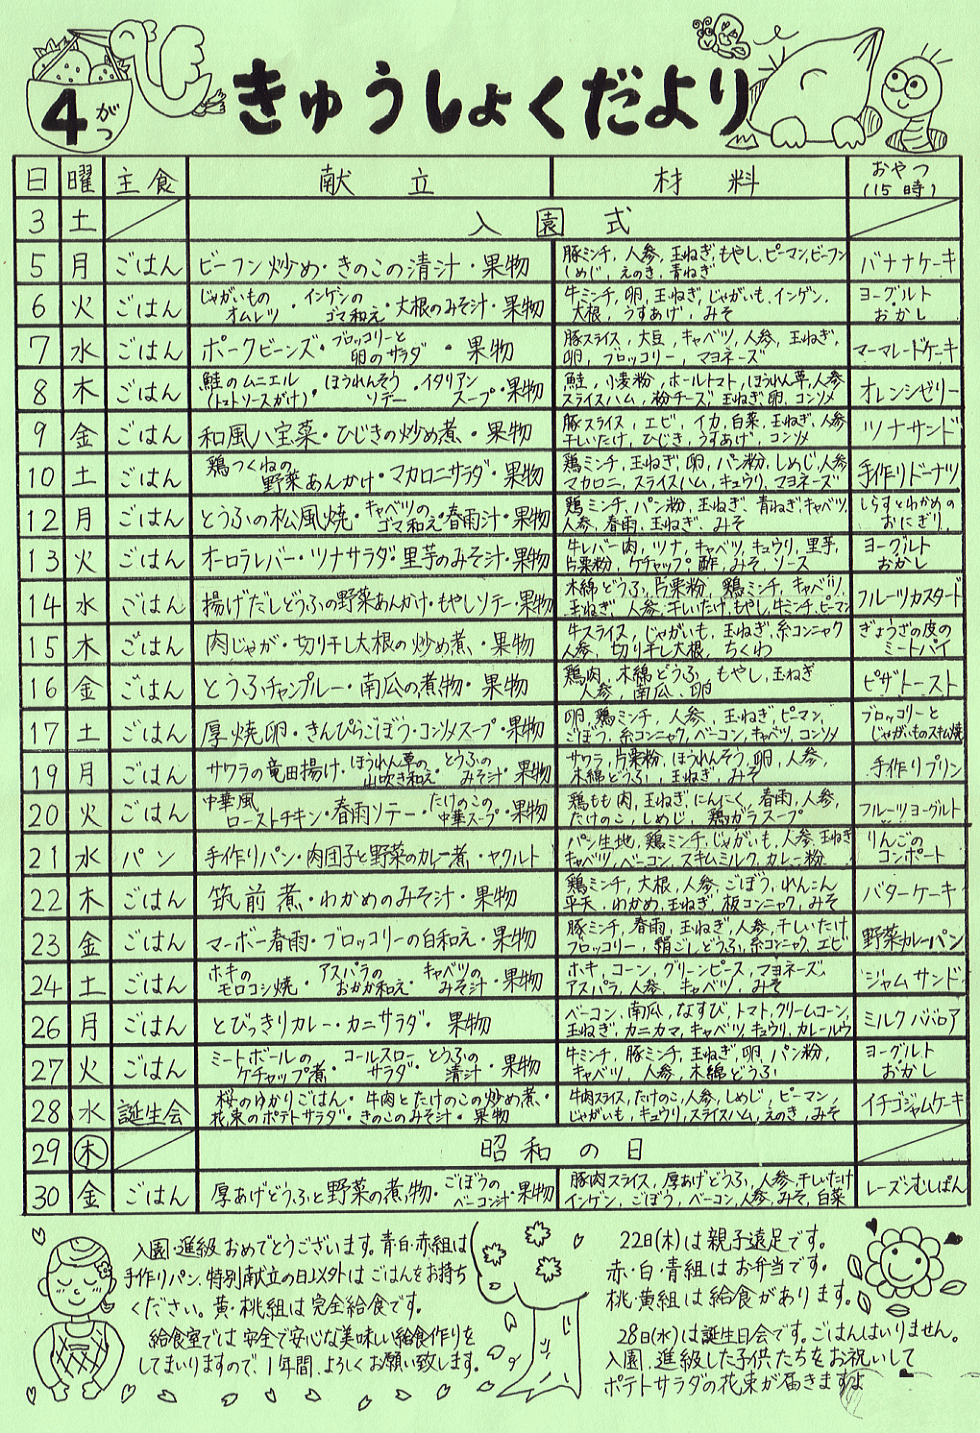 4がつ
きゅうしょくだより
日 曜 主食 献立 材料 おやつ(15時)
3 土 入園式
5 月 ごはん ビーフン炒め・きのこの清汁・果物 豚ミンチ,人参,玉ねぎ,もやし,ピーマン,ビーフン しめじ,えのき,青ねぎ バナナケーキ
6 火 ごはん じゃがいものオムレツ・インゲンのゴマ和え・大根のみそ汁・果物 牛ミンチ,卵,玉ねぎ,じゃがいも,インゲン,大根,うすあげ,みそ ヨーグルト おかし
7 水 ごはん ポークビーンズ・ブロッコリーと卵のサラダ・果物 豚スライス,大豆,キャベツ,人参,玉ねぎ,卵,ブロッコリー,マヨネーズ マーマレードケーキ
8 木 ごはん 鮭のムニエル(トマトソースがけ)・ほうれんそうソテー・イタリアンスープ・果物 鮭,小麦粉,ホールトマト,ほうれん草,人参 スライスハム,粉チーズ 玉ねぎ,卵,コンソメ オレンジゼリー
9 金 ごはん 和風八宝菜・ひじきの炒め煮・果物 豚スライス,エビ,イカ,白菜,玉ねぎ,人参 干しいたけ,ひじき,うすあげ,コンソメ ツナサンド
10 土 ごはん 鶏つくねの野菜あんかけ・マカロニサラダ・果物 鶏ミンチ,玉ねぎ,卵,パン粉,しめじ,人参 マカロニ,スライスハム,キュウリ,マヨネーズ 手作りドーナツ
12 月 ごはん とうふの松風焼・キャベツのゴマ和え・春雨汁・果物 鶏ミンチ,パン粉,玉ねぎ,青ねぎ,キャベツ,人参,春雨,玉ねぎ,みそ しらすとわかめのおにぎり
13 火 ごはん オーロラレバー・ツナサラダ・里芋のみそ汁・果物 牛レバー肉,ツナ,キャベツ,キュウリ,里芋,片栗粉,ケチャップ,酢,みそ,ソース ヨーグルト おかし
14 水 ごはん 揚げだしどうふの野菜あんかけ・もやしソテー・果物 木綿どうふ,片栗粉,鶏ミンチ,キャベツ,玉ねぎ,人参,干しいたけ,もやし,牛ミンチ,ピーマン フルーツカスタード
15 木 ごはん 肉じゃが・切り干し大根の炒め煮・果物 牛スライス,じゃがいも,玉ねぎ,糸コンニャク 人参,切り干し大根,ちくわ ぎょうざの皮のミートパイ
16 金 ごはん とうふチャンプルー・南瓜の煮物・果物 鶏肉,木綿どうふ,もやし,玉ねぎ 人参,南瓜,卵 ピザトースト
17 土 ごはん 厚焼卵・きんぴらごぼう・コンソメスープ・果物 卵,鶏ミンチ,人参,玉ねぎ,ピーマン,ごぼう,糸コンニャク,ベーコン,キャベツ,コンソメ ブロッコリーとじゃがいものスキム焼
19 月 ごはん サワラの竜田揚げ・ほうれん草の山吹き和え・とうふのみそ汁・果物 サワラ,片栗粉,ほうれんそう,卵,人参,木綿どうふ,玉ねぎ,みそ 手作りプリン
20 火 ごはん 中華風ローストチキン・春雨ソテー・たけのこの中華スープ・果物 鶏もも肉,玉ねぎ,にんにく,春雨,人参,たけのこ,しめじ,鶏ガラスープ フルーツヨーグルト
21 水 パン 手作りパン・肉団子と野菜のカレー煮・ヤクルト パン生地,鶏ミンチ,じゃがいも,人参,玉ねぎ キャベツ,ベーコン,スキムミルク,カレー粉 りんごのコンポート
22 木 ごはん 筑前煮・わかめのみそ汁・果物 鶏ミンチ,大根,人参,ごぼう,れんこん 平天,わかめ,玉ねぎ,板コンニャク,みそ バターケーキ
23 金 ごはん マーボー春雨・ブロッコリーの白和え・果物 豚ミンチ,春雨,玉ねぎ,人参,干しいたけ ブロッコリー,絹ごしどうふ,糸コンニャク,エビ 野菜カレーパン
24 土 ごはん ホキのモロコシ焼・アスパラのおかか和え・キャベツのみそ汁・果物 ホキ,コーン,グリーンピース,マヨネーズ,アスパラ,人参,キャベツ,みそ ジャムサンド
26 月 ごはん とびっきりカレー・カニサラダ・果物 ベーコン,南瓜,なすび,トマト,クリームコーン,玉ねぎ,カニカマ,キャベツ,キュウリ,カレールウ ミルクババロア
27 火 ごはん ミートボールのケチャップ煮・コールスローサラダ・とうふの清汁・果物 牛ミンチ,豚ミンチ,玉ねぎ,卵,パン粉,キャベツ,人参,木綿どうふ ヨーグルト おかし
28 水 誕生会 桜のゆかりごはん・牛肉とたけのこの炒め煮・花束のポテトサラダ・きのこのみそ汁・果物 牛肉スライス,たけのこ,人参,しめじ,ピーマン,じゃがいも,キュウリ,スライスハム,えのき,みそ イチゴジャムケーキ
29 木 昭和の日
30 金 ごはん 厚あげどうふと野菜の煮物・ごぼうのベーコン汁・果物 豚肉スライス,厚あげどうふ,人参,干しいたけ インゲン,ごぼう,ベーコン,人参,みそ,白菜 レーズンむしぱん
入園・進級おめでとうございます。青・白・赤組は
手作りパン、特別献立の日以外はごはんをお持ち
ください。黄・桃組は完全給食です。
給食室では安全で安心な美味しい給食作りを
してまいりますので、1年間、よろしくお願い致します。
22日(木)は親子遠足です。
赤・白・青組はお弁当です。
桃・黄組は給食があります。
28日(水)は誕生日会です。ごはんはいりません。
入園、進級した子供たちをお祝いして
ポテトサラダの花束が届きますよ